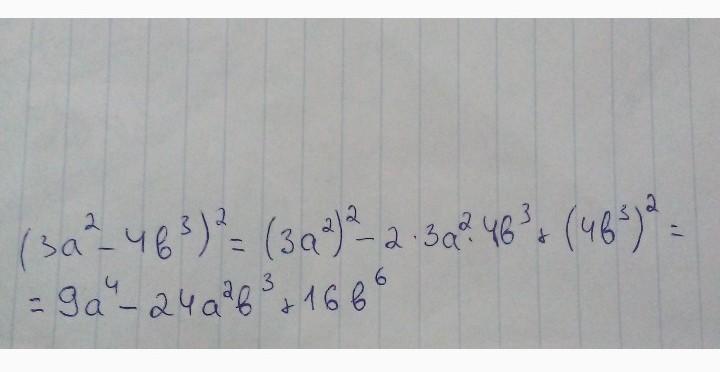 (3a² - 4в³)² = (3a²)² - 2 · 3a² · 4в³ + (4в³)² =
= 9a⁴ - 24a²в³ + 16в⁶